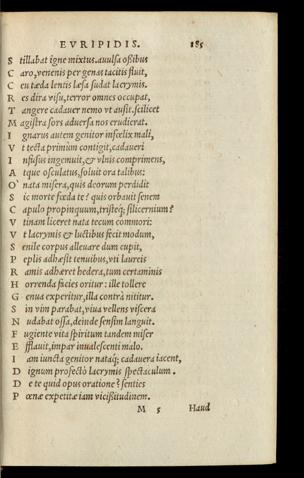 EVRIPIDIS. 185
S tillabat igne mixtus. auulsa ossibus
C aro, venenis per genas tacitis fluit,
C eu tæda lentis læsa sudat lacrymis.
R es dira visu, terror omnes occupat,
T angere cadauer nemo vt ausit. scilicet
M agistra sors aduersa nos erudierat.
I gnarus autem genitor infœlix mali,
V t tecta primùm contigit, cadaueri
I nfusus ingemuit, & vlnis comprimens,
A tque osculatus, soluit ora talibus:
O nata misera, quis deorum perdidit
S ic morte fœda te? quis orbauit senem
C apulo propinquum, tristéq; silicernium?
V tinam liceret nata tecum commori:
V t lacrymis & luctibus fecit modum,
S enile corpus alleuare dum cupit,
P eplis adhæsit tenuibus, vti laureis
R amis adhæret hedera, tum certaminis
H orrenda facies oritur: ille tollere
G enua experitur, illa contrà nititur.
S in vim parabat, viua vellens viscera
N udabat ossa, deinde sensim languit.
F ugiente vita spiritum tandem miser
E fflauit, impar inualescenti malo.
I am iuncta genitor nataq; cadauera iacent,
D ignum profectò lacrymis spectaculum.
D e te quid opus oratione? senties
P œnæ expetitæ iam vicissitudinem.
M 5 Haud